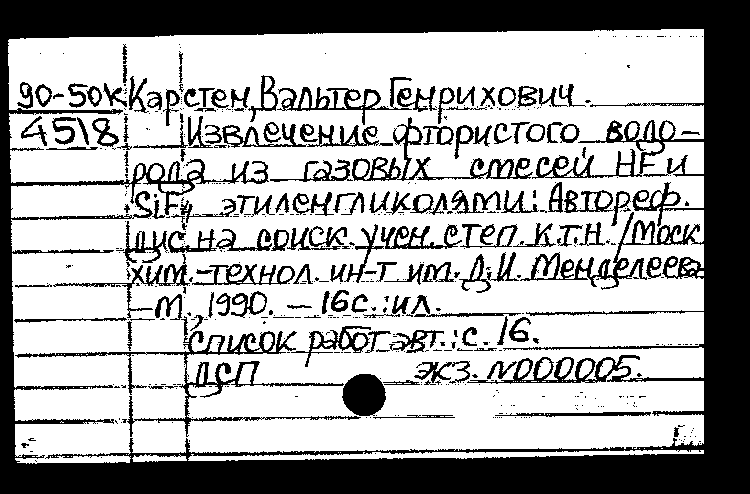 90-50к Карстен, Вальтер Генрихович.
4518 Извлечение фтористого водо-
рода из газовых смесей HF и
SiF₄ этиленгликолями: Автореф.
дис. на соиск. учен. степ. к.т.н. /Моск
хим.-технол. ин-т им. Д.И. Менделеева
—М., 1990. — 16 с.: ил.
Список работ авт.: с. 16.
ДСП экз. N000005.